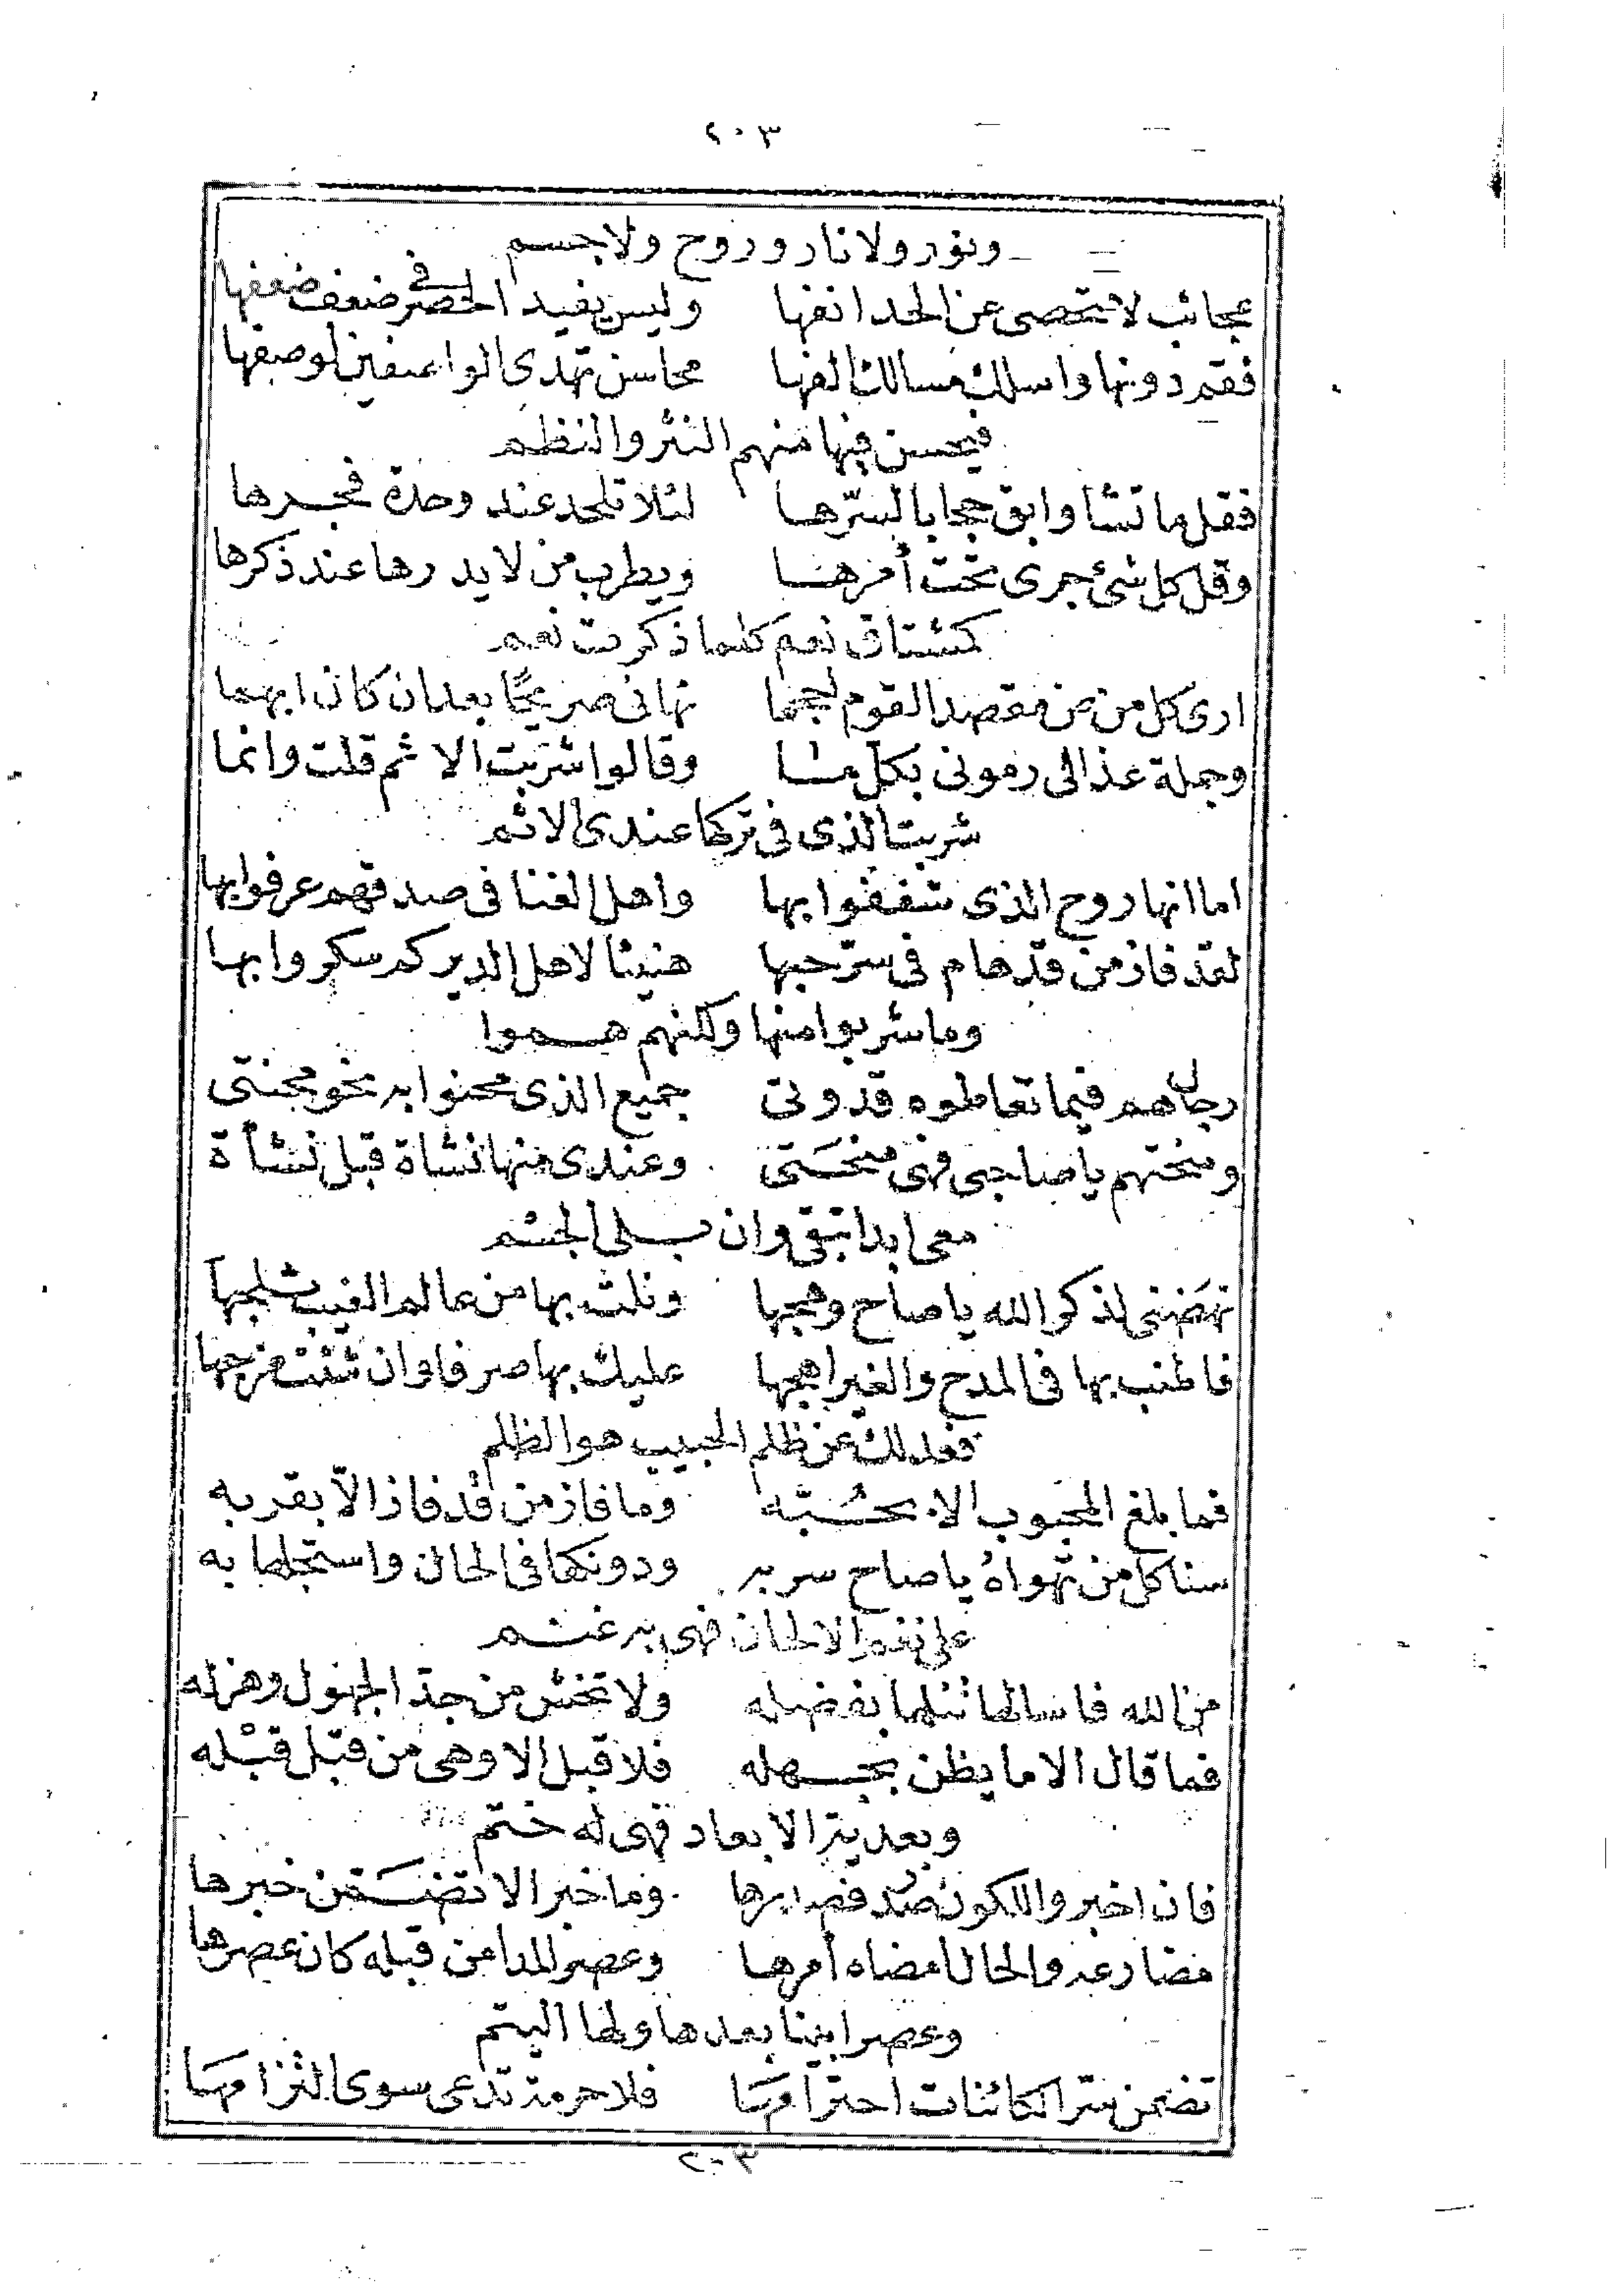 ٢٠٣
ونور ولا نار وروح ولا جسم
عجائب لا تحصى عن الحد انفها وليس يفيد الحصر في ضعف ضعفها
فقم دونها واسلك مسالك الفها محاسن تهدى الواصفين لوصفها
فيحسن فيها منهم النثر والنظم
فقل ما تشا وابق حجابا لسرّها لئلا تلحد عند وحدة فجرها
وقل كل شئ جرى تحت أمرها ويطرب من لا يدرها عند ذكرها
كمشتاق نعم كلما ذكرت نعم
ارى كل من من مقصد القوم نهانى صريحًا بعد ان كان ابهما
وجملة عذالى رمونى بكل ما وقالوا شربت الاثم قلت وانما
شربت الذى فى تركها عندى الاثم
اما انها روح الذى شغفوا بها واهل الغنا فى صدقهم عرفوا بها
لقد فاز من قد هام فى سرّ حبها هنيئا لاهل الدير كم سكروا بها
وما شربوا منها ولكنهم هموا
رجال هم فيما تعاطوه قدوتى جميع الذى محنوا به نحو محنتى
ومنحتهم يا صاحبى فهى منحتى وعندى منها نشاة قبل نشأة
معى ابدا تبقى وان يبلى الجسم
تهضنى لذكر الله يا صاح وهجها ونلت بها من عالم الغيب ثلجها
فاطنب بها فى المدح والغير اهجها عليك بها صرفا وان شئت مزجها
فعدلك عن ظلم الحبيب هو الظلم
فما بلغ المحبوب الا بحبّه وما فاز من قد فاز الّا بقربه
سنا كل من تهواه يا صاح سر به ودونكها فى الحان واستجلها به
على نغم الالحان فهى به غنم
من الله فاسالها تنلها بفضله ولا تخش من جد الجهول وهزله
فما قال الا ما يظن بجهله فلا قبل الا وهى من قبل قبله
وبعدية الابعاد فهى له ختم
فان اخبروا للكون وما خبر الا تضمن خبرها
مضارعه والحال أمضاه أمرها وعصر المدا من قبله كان عصرها
وعصر ابينا بعدها ولها اليتم
تضمن سر الكائنات احترامها فلا حرمة تدعى سوى التزامها
٢٠٣